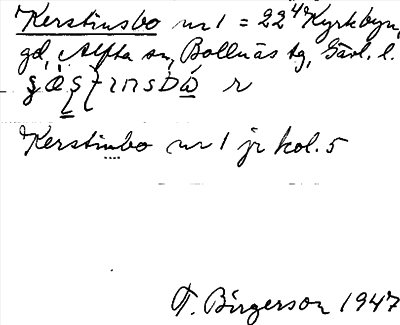 Kerstinsbo nr 1 = 22⁴⁷ Kyrkbyn,
gd, Alfta sn, Bollnäs tg, Gävl. l.
Kerstinbo nr 1 jr kol. 5
T. Birgerson 1947